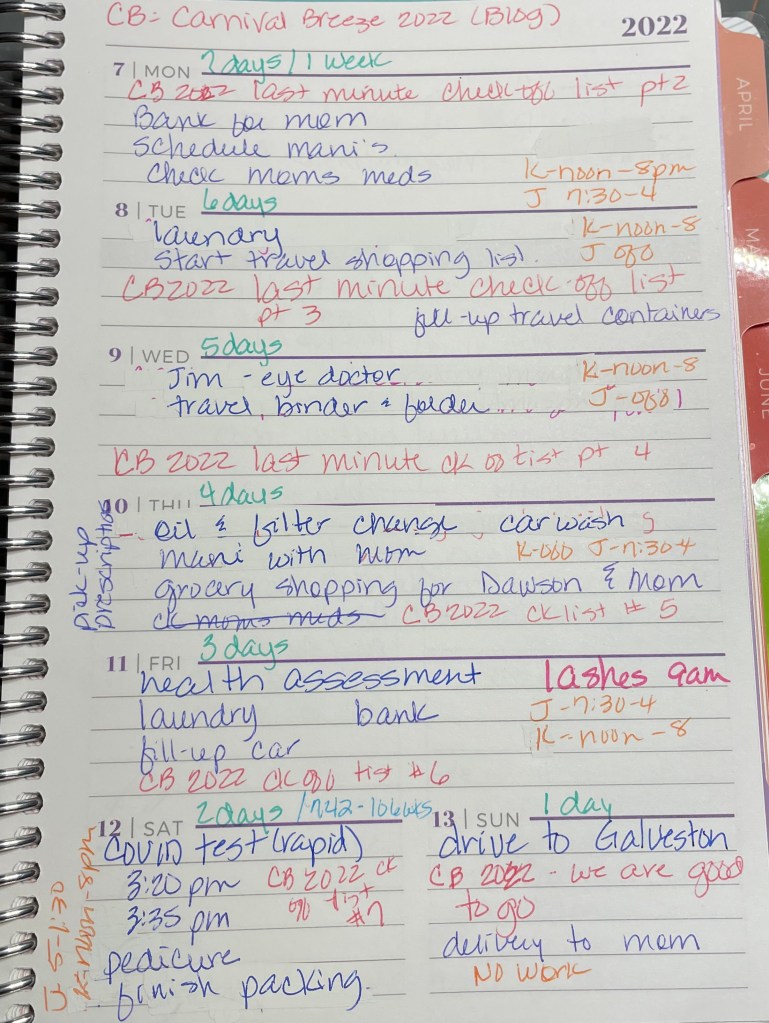 CB= Carnival Breeze 2022 (Blog)
2022
7 | MON 7 days / 1 week
CB 2022 last minute check-off list pt 2
Bank for mom
Schedule mani's
Check moms meds
K-noon-8pm
J 7:30-4
8 | TUE 6 days
laundry
K-noon-8
start travel shopping list.
J off
CB 2022 last minute check-off list
pt 3
fill-up travel containers
9 | WED 5 days
Jim - eye doctor
K-noon-8
travel binder & folder
J-off
CB 2022 last minute ck off list pt 4
10 | THU 4 days
pick-up
prescription
oil & filter change car wash
mani with mom
K-off J-7:30-4
grocery shopping for Dawson & mom
ck moms meds CB 2022 ck list # 5
11 | FRI 3 days
health assessment
lashes 9am
laundry bank
J-7:30-4
fill-up car
K-noon-8
CB 2022 ck off list #6
12 | SAT 2 days
COVID test (rapid)
3:20 pm
3:35 pm
CB 2022 ck
off list
#7
pedicure
finish packing.
K-noon-8pm
13 | SUN 1 day
drive to Galveston
CB 2022 - we are good
to go
delivery to mom
NO WORK
APRIL
JUNE